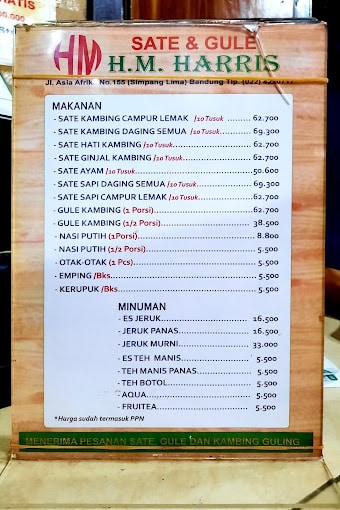 HM SATE & GULE
H.M. HARRIS
Jl. Asia Afrik No.165 (Simpang Lima) Bandung Tlp. (022)
MAKANAN
- SATE KAMBING CAMPUR LEMAK /10 Tusuk .......... 62.700
- SATE KAMBING DAGING SEMUA /10 Tusuk.......... 69.300
- SATE HATI KAMBING /10 Tusuk.......... 62.700
- SATE GINJAL KAMBING /10 Tusuk.......... 62.700
- SATE AYAM /10 Tusuk.......... 50.600
- SATE SAPI DAGING SEMUA /10 Tusuk.......... 69.300
- SATE SAPI CAMPUR LEMAK /10 Tusuk.......... 62.700
- GULE KAMBING (1 Porsi).......... 62.700
- GULE KAMBING (1/2 Porsi) .......... 38.500
- NASI PUTIH (1Porsi).......... 8.800
- NASI PUTIH (1/2 Porsi).......... 5.500
- OTAK-OTAK (1 Pcs).......... 5.500
- EMPING /Bks.......... 5.500
- KERUPUK /Bks.......... 5.500
MINUMAN
- ES JERUK.......... 16.500
- JERUK PANAS.......... 16.500
- JERUK MURNI.......... 33.000
- ES TEH MANIS.......... 5.500
- TEH MANIS PANAS.......... 5.500
- TEH BOTOL.......... 5.500
- AQUA.......... 5.500
- FRUITEA.......... 5.500
*Harga sudah termasuk PPN
MENERIMA PESANAN SATE, GULE DAN KAMBING GULING